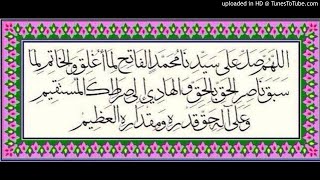 uploaded in HD @ TunesToTube.com
اللهم صل على سيدنا محمد الفاتح لما أغلق والخاتم لما
سبق ناصر الحق بالحق والهادي إلى صراطك المستقيم
وعلى آله حق قدره ومقداره العظيم